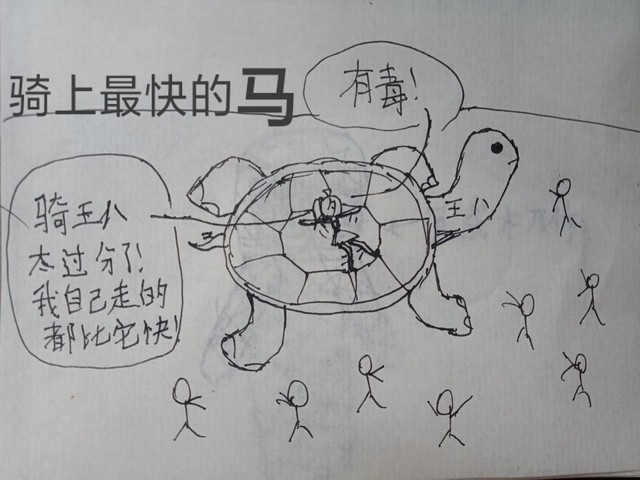 骑上最快的马
有毒!
王八
骑王八
太过分了!
我自己走的
都比它快!